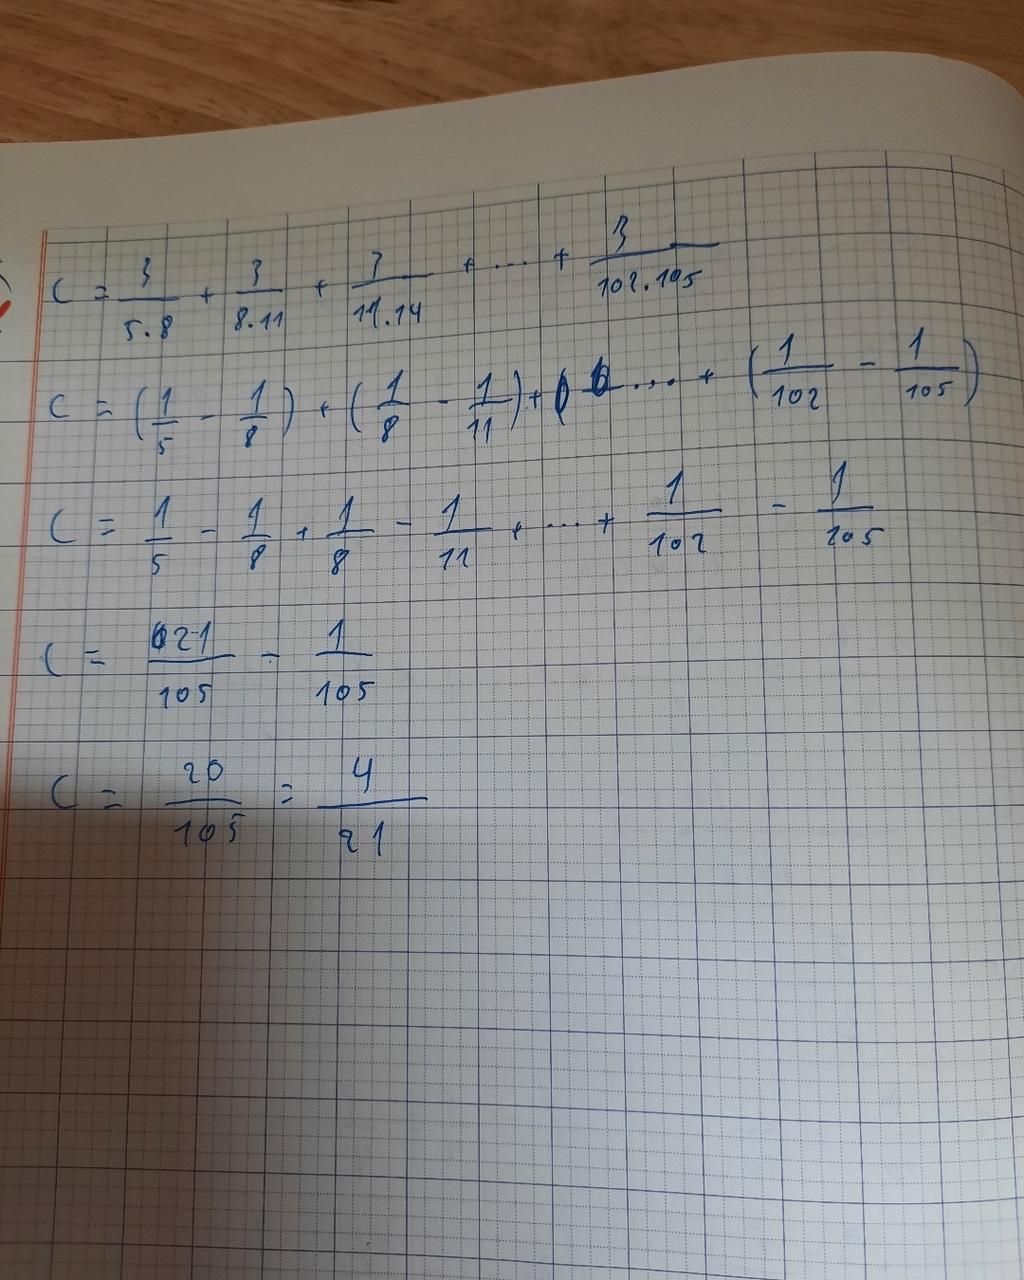 C = 3/5.8 + 3/8.11 + 3/11.14 + ... + 3/102.105
C = (1/5 - 1/8) + (1/8 - 1/11) + ... + (1/102 - 1/105)
C = 1/5 - 1/8 + 1/8 - 1/11 + ... + 1/102 - 1/105
C = 21/105 - 1/105
C = 20/105 = 4/21